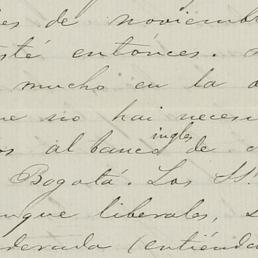 es de noviembre
esté entónces.
mucho en la
no hai necesi
os al banco ingles de
Bogotá. Los SS.
unque liberales, s
derada (entienda